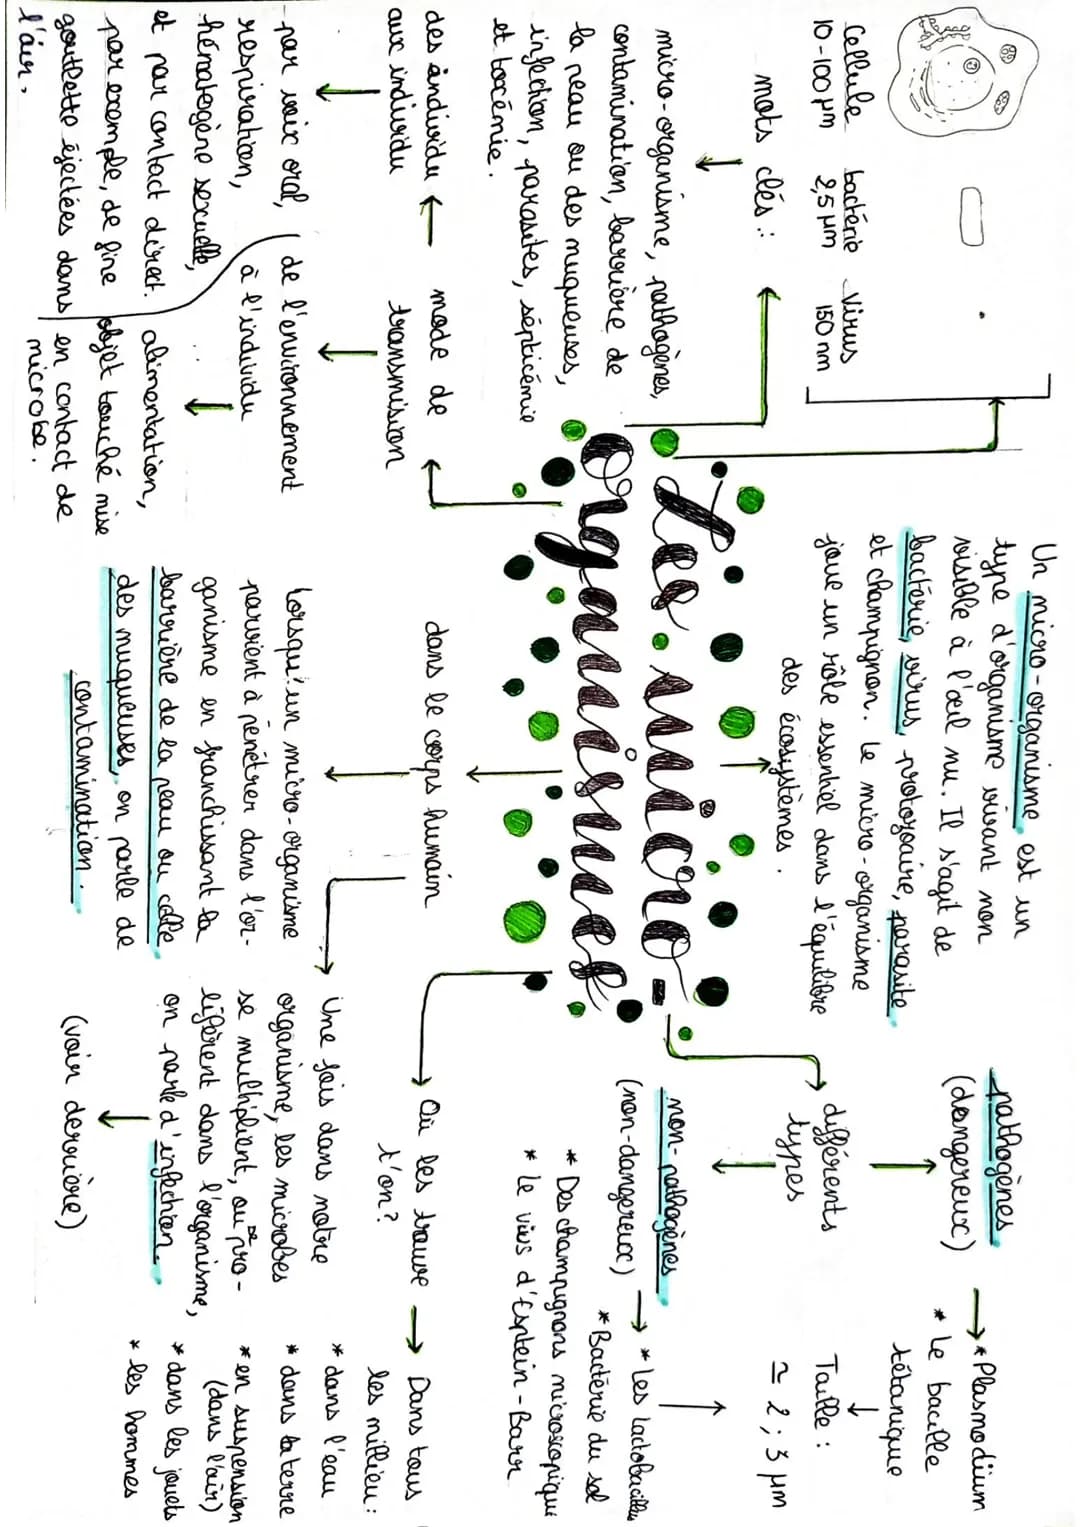 Les micro-
organnismes
Cellule bactérie Virus
10-100 µm 2,5 µm 150 nm
mots clés :
micro-organisme, pathogènes,
contamination, barrière de
la peau ou des muqueuses,
infection, parasites, septicémie
et tocénie.
Un micro-organisme est un
type d'organisme vivant non
visible à l'œil nu. Il s'agit de
bactérie, virus, protozoaire, parasite
et champignon. Le micro-organisme
joue un rôle essentiel dans l'équilibre
des écosystèmes.
différents
types
pathogènes
(dangereux)
* Plasmodium
* Le bacille
tétanique
Taille :
≃ 2 ; 3 µm
non-pathogènes
(non-dangereux)
* Les lactobacilles
* Bactérie du sol
* Des champignons microscopique
* Le virus d'Esptein-Barr
mode de
transmission
des individu
aux individu
-par voix oral,
respiration,
hématogène sexuelle,
et par contact direct.
par exemple, de fine
goutlette éjectées dans
l'air.
de l'environnement
à l'individu
alimentation,
objet touché mise
en contact de
microbe.
dans le corps humain
Lorsqu'un micro-organisme
parvient à pénétrer dans l'or-
ganisme en franchissant la
barrière de la peau ou celle
des muqueuses, on parle de
contamination.
Une fois dans notre
organisme, les microbes
se multiplient, ou se pro-
lifèrent dans l'organisme,
on parle d'infection.
(voir derrière)
Où les trouve
t'on?
Dans tous
les millieu :
* dans l'eau
* dans la terre
* en suspension
(dans l'air)
* dans les jouets
* les hommes